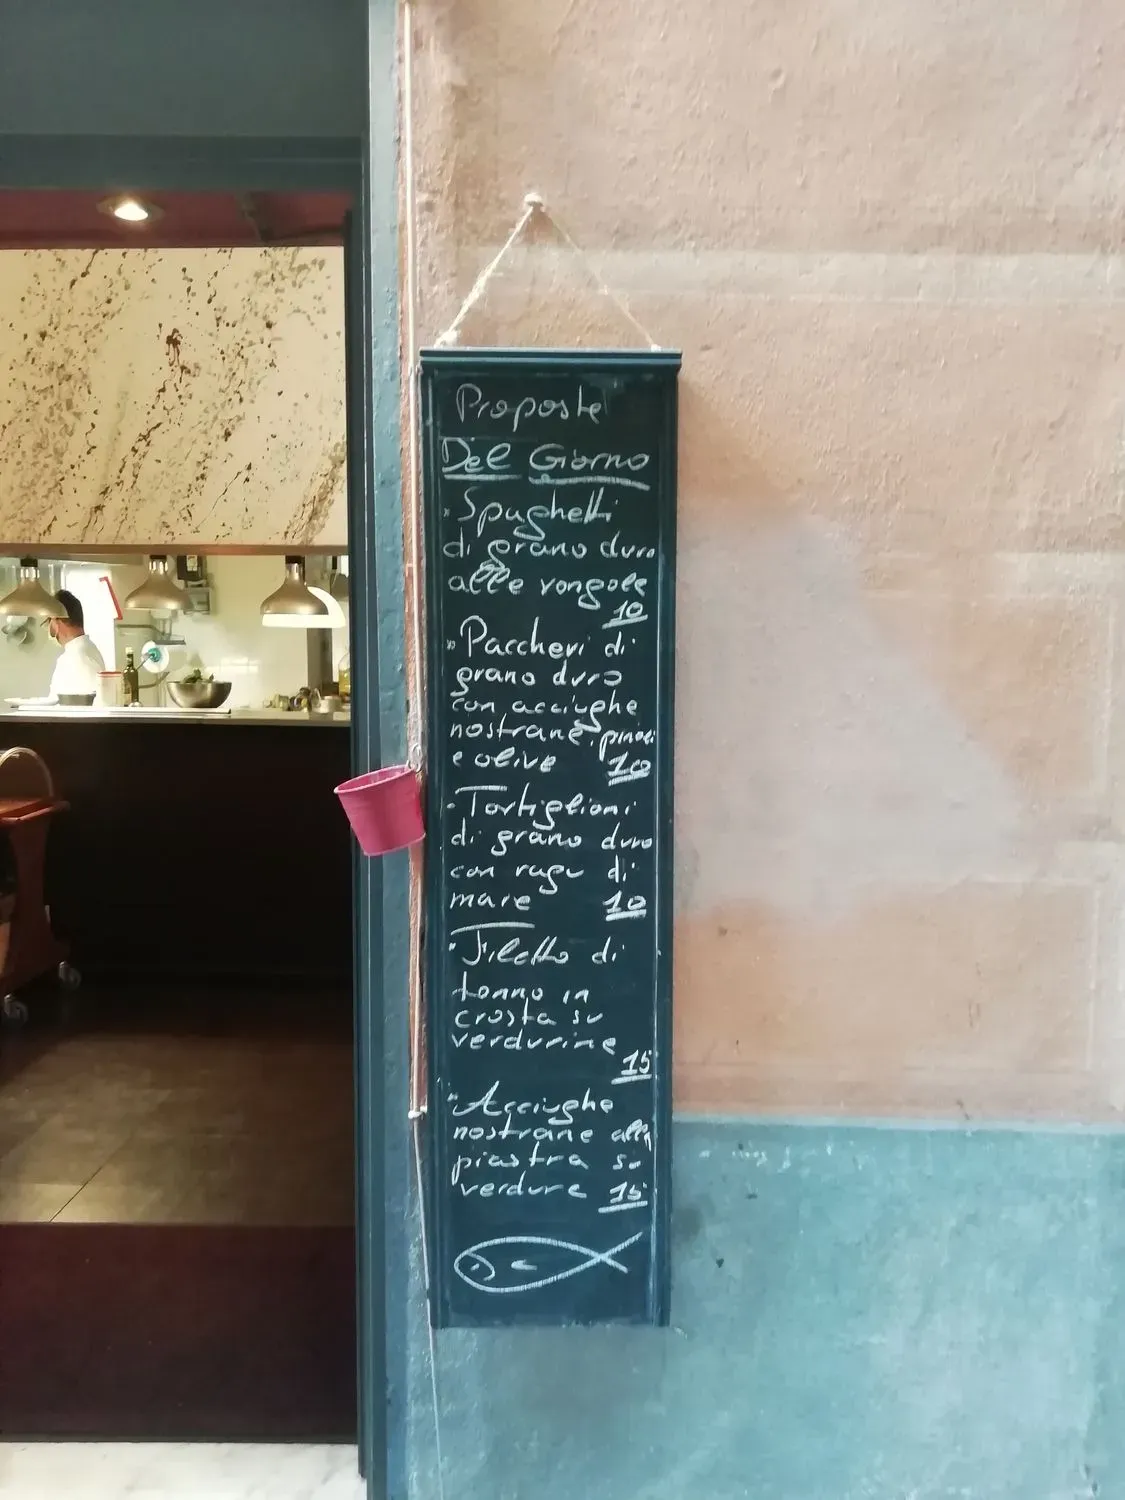 Proposte
Del Giorno
Spaghetti
di grano duro
alle vongole
10
Paccheri di
grano duro
con acciughe
nostrane, pinoli
e olive 10
Tortiglioni
di grano duro
con ragu di
mare 10
Filetto di
tonno in
crosta su
verdurine
15
Acciughe
nostrane alla
piastra su
verdure 15